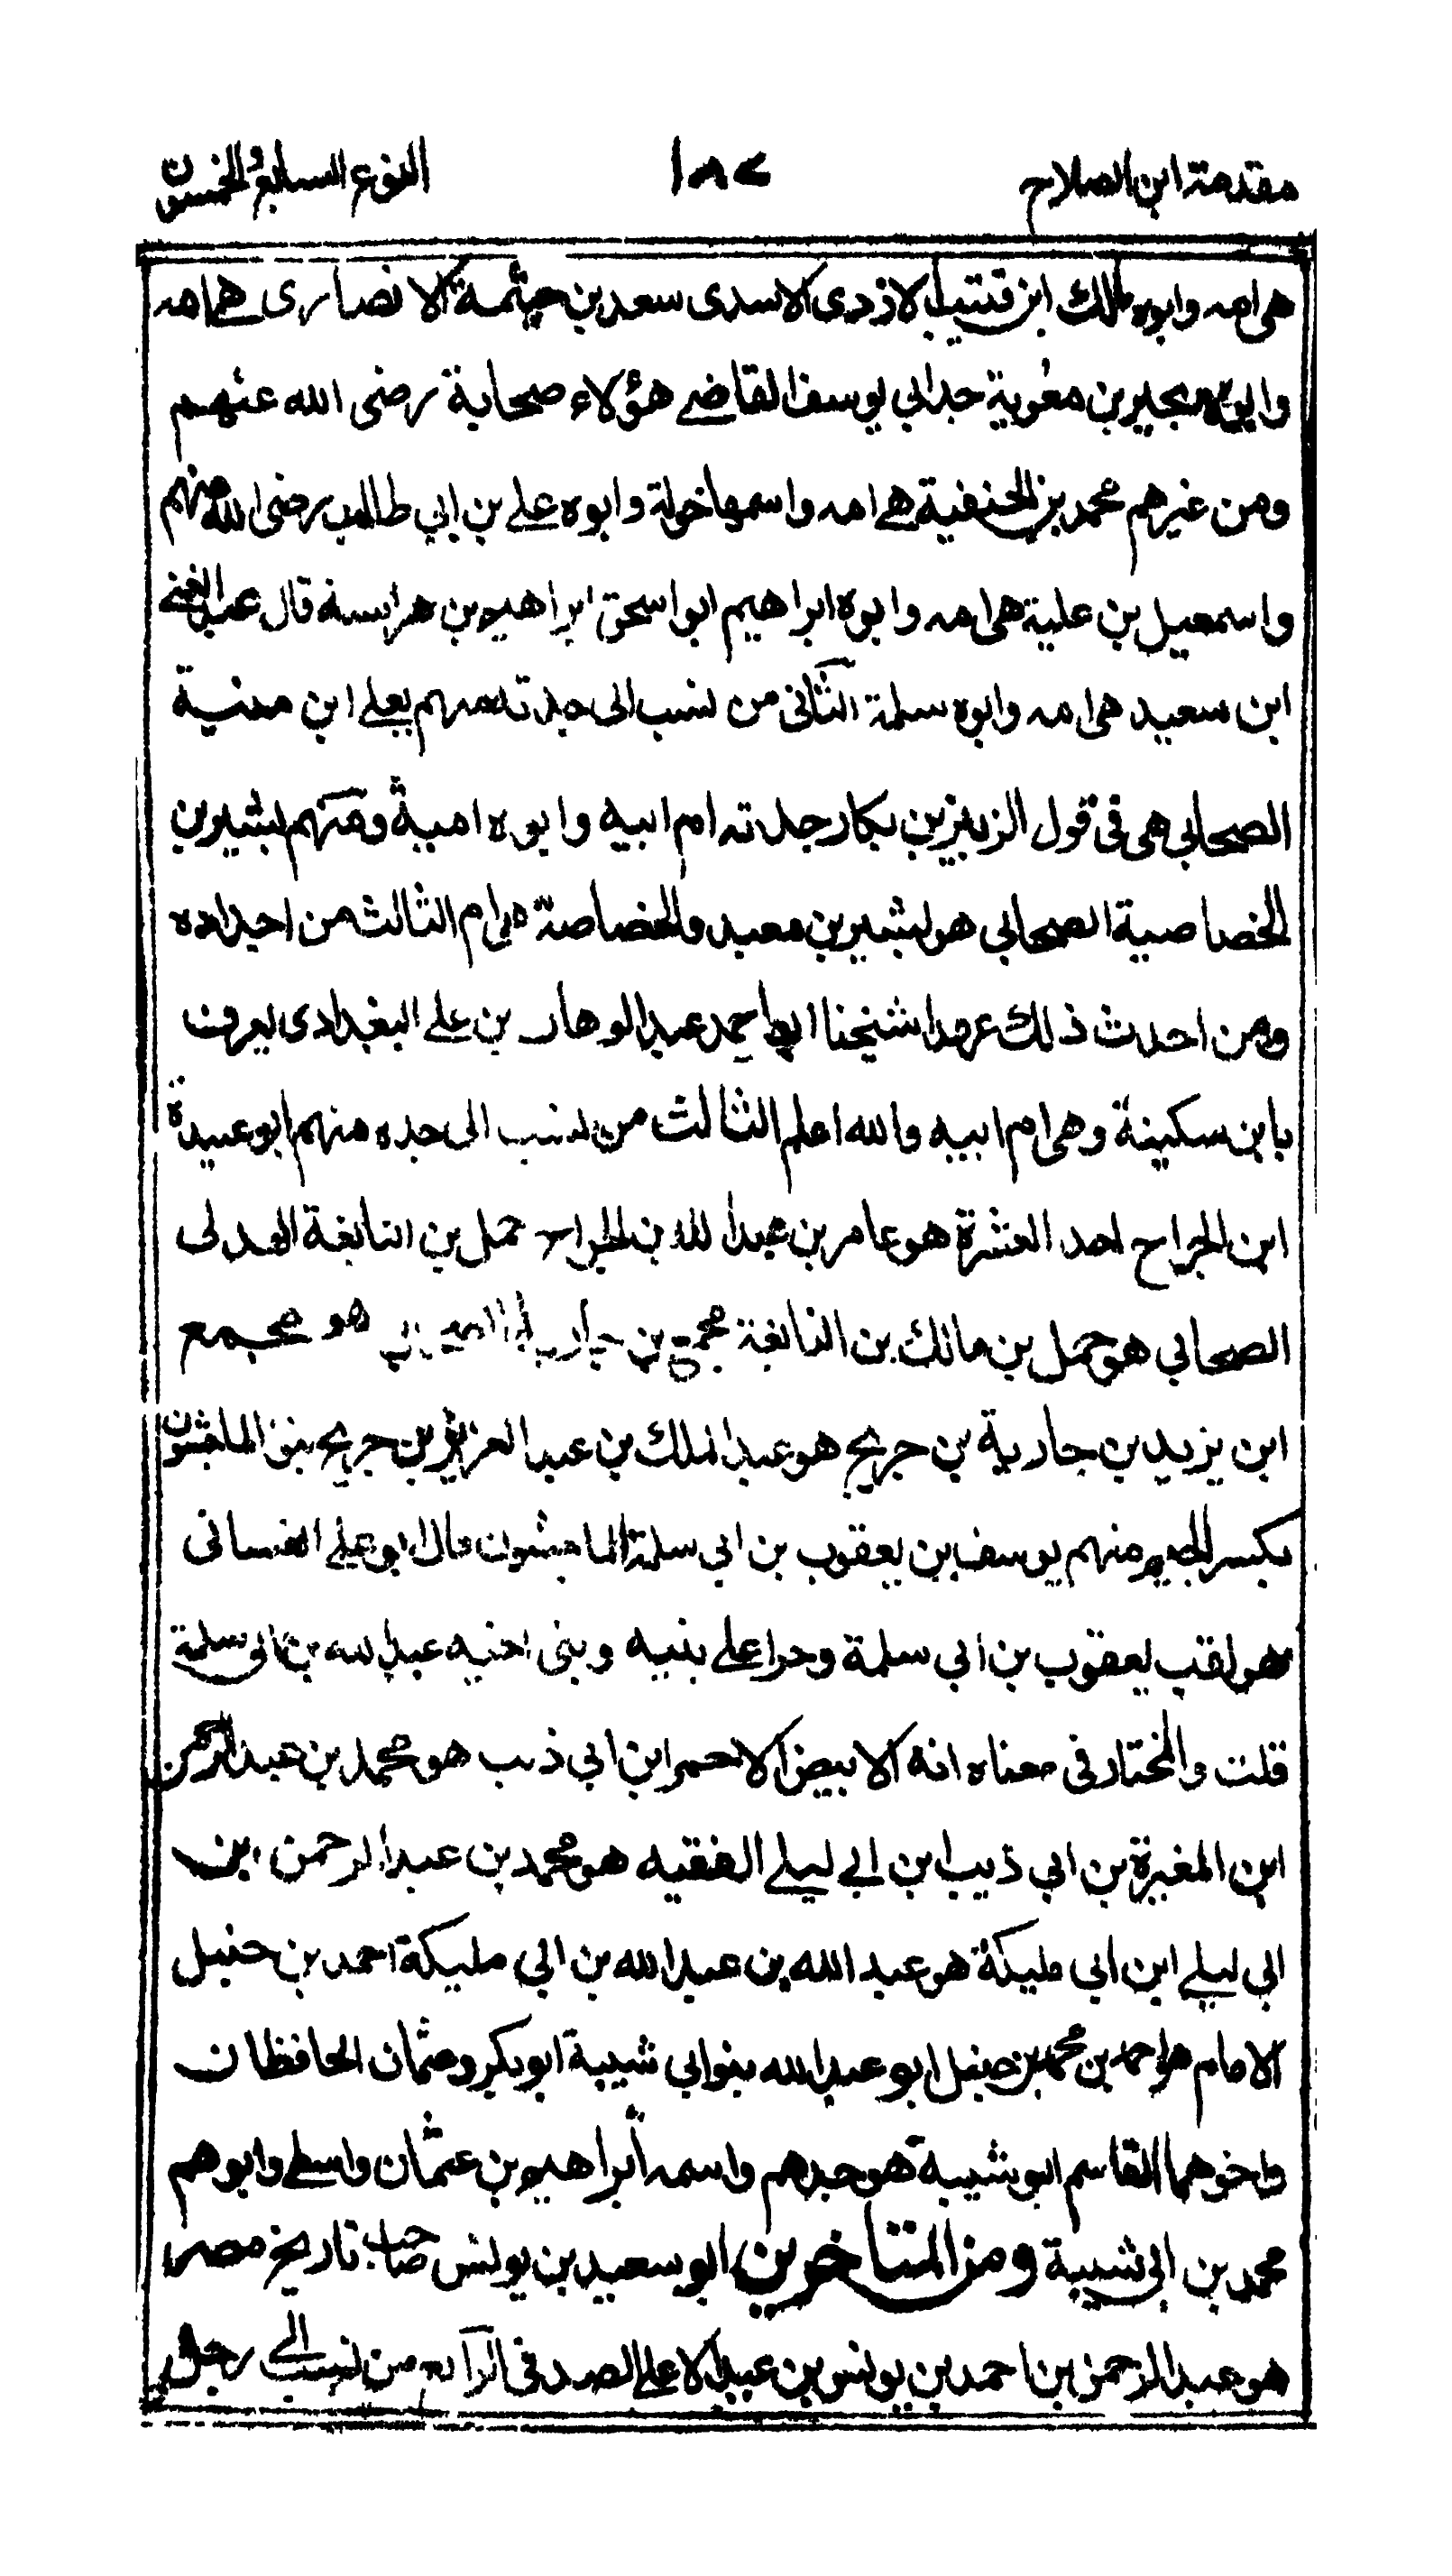 مقدمة ابن الصلاح ١٨٧ النوع السابع والخمسون
هى امه وابوه مالك ابن قتيب الازدى الاسدى سعد بن حبتمة الانصارى هى امه
وابوه بجير بن معوية جد ابي يوسف القاضے هؤلاء صحابة رضى الله عنهم
ومن غيرهم محمد بن الحنفية هے امه واسمها خولة وابوه علے بن ابي طالب رضى الله منهم
واسمعيل بن علية هى امه وابوه ابراهيم ابو اسحق ابراهيم بن هراسة قال عبد الغنے
ابن سعيد هى امه وابوه سلمة الثانى من نسب الى جدته منهم يعلے ابن منية
الصحابي هى فى قول الزبير بن بكار جدته ام ابيه وابوه امية ومنهم بشير بن
الخصاصية الصحابي هو بشير بن معبد والخصاصة هى ام الثالث من اجداده
ومن احدث ذلك عهدا شيخنا ابو احمد عبد الوهاب بن علے البغدادى يعرف
بابن سكينة وهى ام ابيه والله اعلم الثالث من نسب الى جده منهم ابو عبيدة
ابن الجراح احد العشرة هو عامر بن عبد الله بن الجراح حمل بن النابغة الهدلى
الصحابي هو حمل بن مالك بن النابغة مجمع بن جارية هو مجمع
ابن يزيد بن جارية بن جريج هو عبد الملك بن عبد العزيز بن جريج بنو الماجشون
بكسر الجيم منهم يوسف بن يعقوب بن ابي سلمة الماجشون قال ابو علے الغسانى
هو لقب يعقوب بن ابي سلمة وجرا علے بنيه وبنى اخيه عبد الله بن ابى سلمة
قلت والمختار فى معناه انه الابيض الاحمر ابن ابي ذيب هو محمد بن عبد الرحمن
ابن المغيرة بن ابي ذيب ابن ابے ليلے الفقيه هو محمد بن عبد الرحمن بن
ابي ليلے ابن ابي مليكة هو عبد الله بن عبيد الله بن ابي مليكة احمد بن حنبل
الامام هو احمد بن محمد بن حنبل ابو عبد الله بنو ابي شيبة ابو بكر وعثمان الحافظان
واخوهما القاسم ابو شيبة هو جدهم واسمه ابراهيم بن عثمان واسطے وابوهم
محمد بن ابى شيبة ومن المتاخرين ابو سعيد بن يونس صاحب تاريخ مصر
هو عبد الرحمن بن احمد بن يونس بن عبد الاعلے الصدفى الرابع من نسب الے رجل